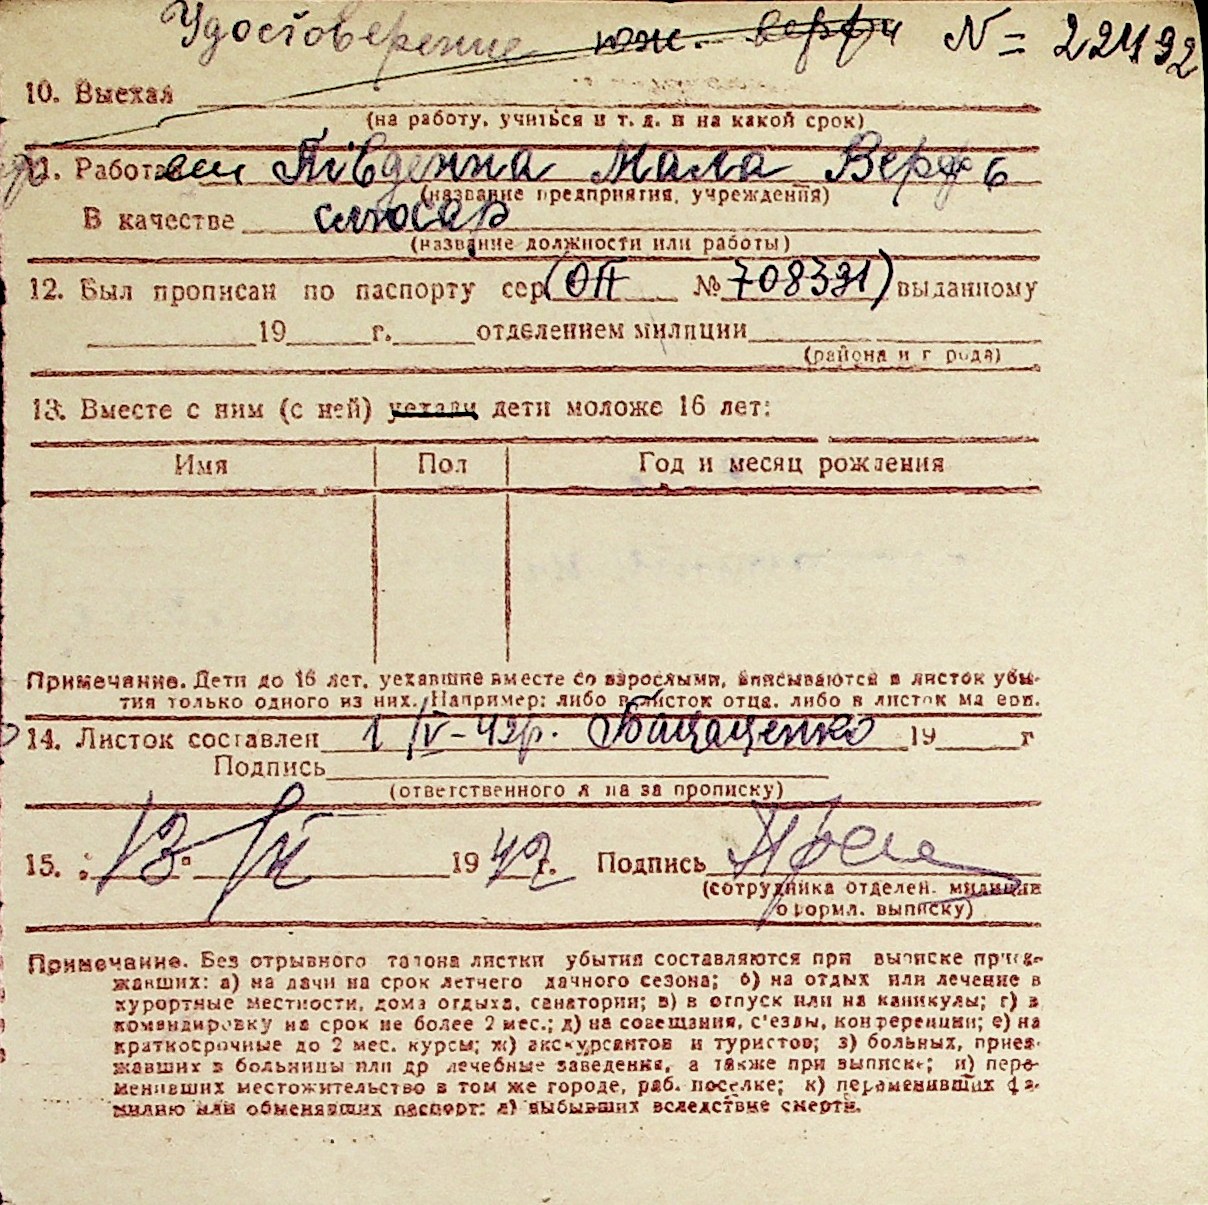 Удостоверение юж. верфи № = 22492
10. Выехал
(на работу, учиться и т. д. и на какой срок)
11. Работает Південна Мала Верф 6
(название предприятия, учреждения)
В качестве слюсар
(название должности или работы)
12. Был прописан по паспорту сер (ОП № 708391) выданному
19 г. отделением милиции
(района и города)
13. Вместе с ним (с ней) уехали дети моложе 16 лет:
Имя Пол Год и месяц рождения
Примечание. Дети до 16 лет, уехавшие вместе со взрослыми, вписываются в листок убы-
тия только одного из них. Например: либо в листок отца, либо в листок матери.
14. Листок составлен 1/IV-42р. 19 г
Подпись
(ответственного лица за прописку)
15. 13 1942г. Подпись
(сотрудника отделен. милиции
оформл. выписку)
Примечание. Без отрывного талона листки убытия составляются при выписке приез-
жавших: а) на дачи на срок летнего дачного сезона; б) на отдых или лечение в
курортные местности, дома отдыха, санатории; в) в отпуск или на каникулы; г) в
командировку на срок не более 2 мес.; д) на совещания, с'езды, конференции; е) на
краткосрочные до 2 мес. курсы; ж) экскурсантов и туристов; з) больных, приез-
жавших в больницы или др лечебные заведения, а также при выписке; и) пере-
менивших местожительство в том же городе, раб. поселке; к) переменивших фа-
милию или обменявших паспорт; л) выбывших вследствие смерти.